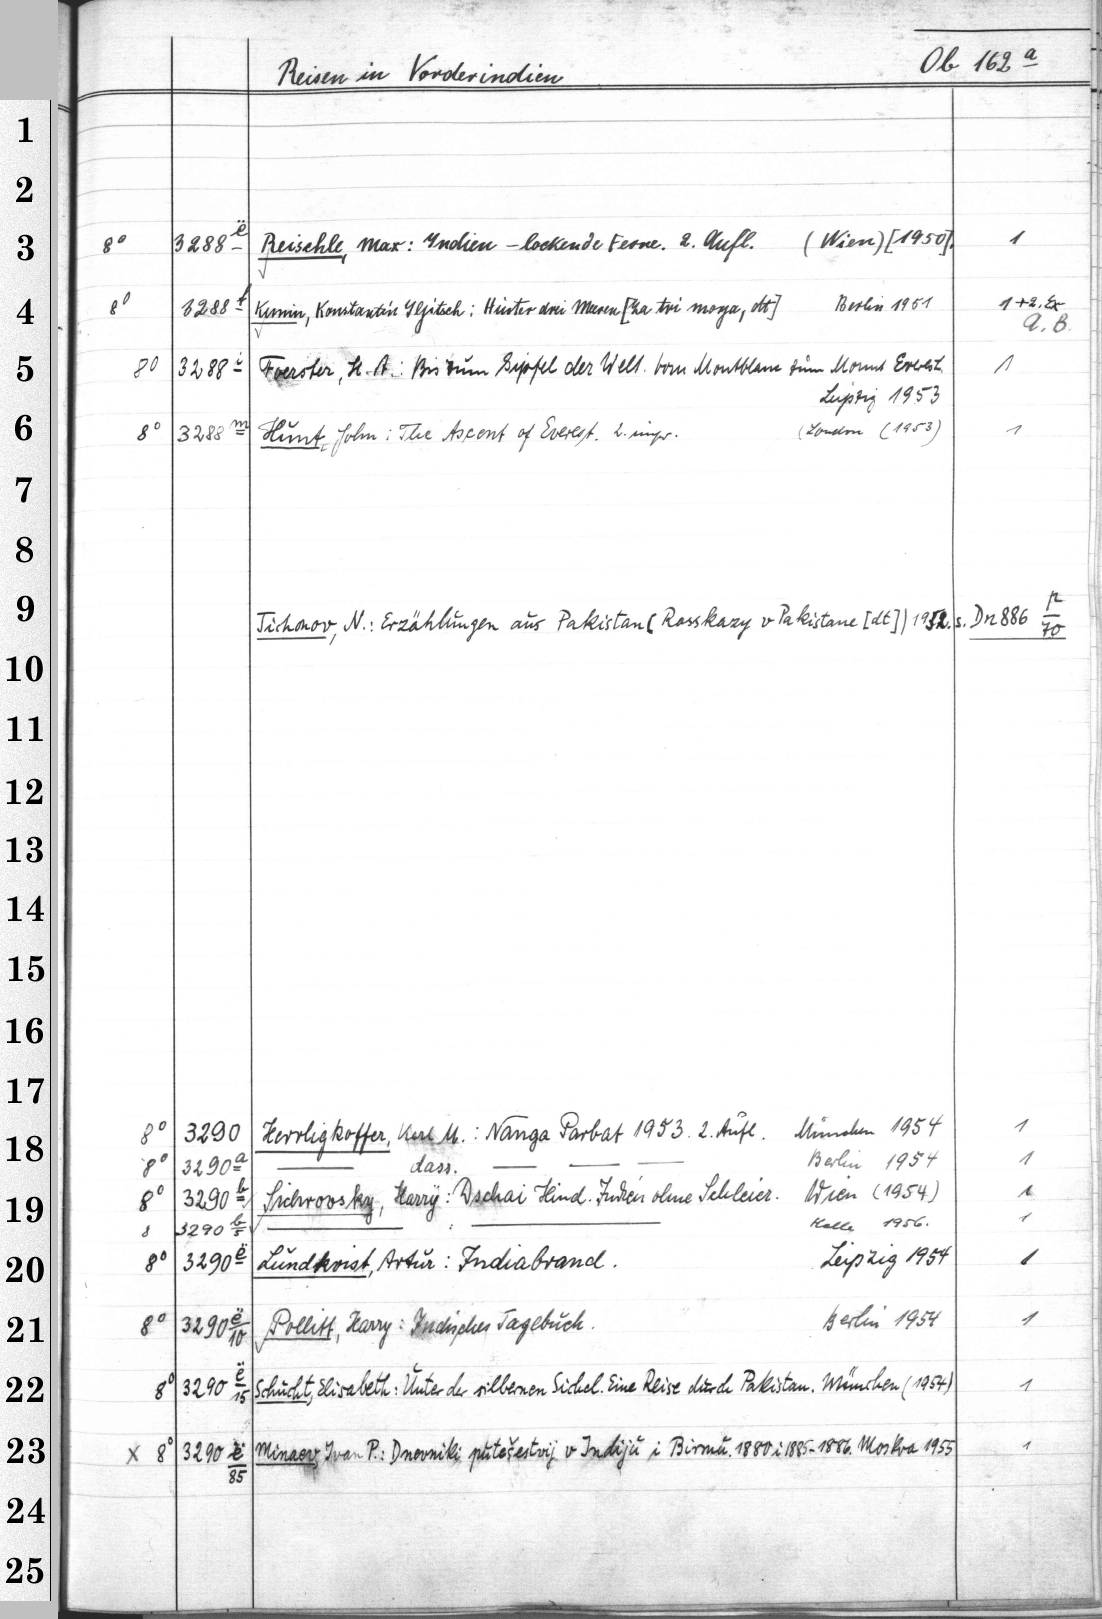 Reisen in Vorderindien Ob 162 a
1
2
3 8° 3288 ë Reischle, Max: Indien – lockende Ferne. 2. Aufl. (Wien) [1950]. 1
4 8° 3288 f Kunin, Konstantin Iljitsch: Hinter drei Meeren [Za tri morja, dt] Berlin 1951 1 + 2. Ex
a. B.
5 8° 3288 i Foerster, H. A.: Bis zum Gipfel der Welt. vom Montblanc zum Mount Everest.
Leipzig 1953 1
6 8° 3288 m Hunt, John: The Ascent of Everest. 2. impr. (London (1953) 1
7
8
9 Tichonov, N.: Erzählungen aus Pakistan (Rasskazy v Pakistane [dt]) 1952. s. Dn 886 p/70
10
11
12
13
14
15
16
17
18 8° 3290 Herrligkoffer, Karl M.: Nanga Parbat 1953. 2. Aufl. München 1954 1
8° 3290 a — dass. — — — Berlin 1954 1
19 8° 3290 b Sichrovsky, Harry: Dschai Hind. Indien ohne Schleier. Wien (1954) 1
8 3290 b/5 — : — Halle 1956. 1
20 8° 3290 ë Lundkvist, Artur: Indiabrand. Leipzig 1954 1
21 8° 3290 ë/10 Pollitt, Harry: Indisches Tagebuch. Berlin 1954 1
22 8° 3290 ë/15 Schucht, Elisabeth: Unter der silbernen Sichel. Eine Reise durch Pakistan. München (1954) 1
23 x 8° 3290 ë/85 Minaev, Ivan P.: Dnevniki putešestvij v Indiju i Birmu. 1880 i 1885-1886. Moskva 1955 1
24
25